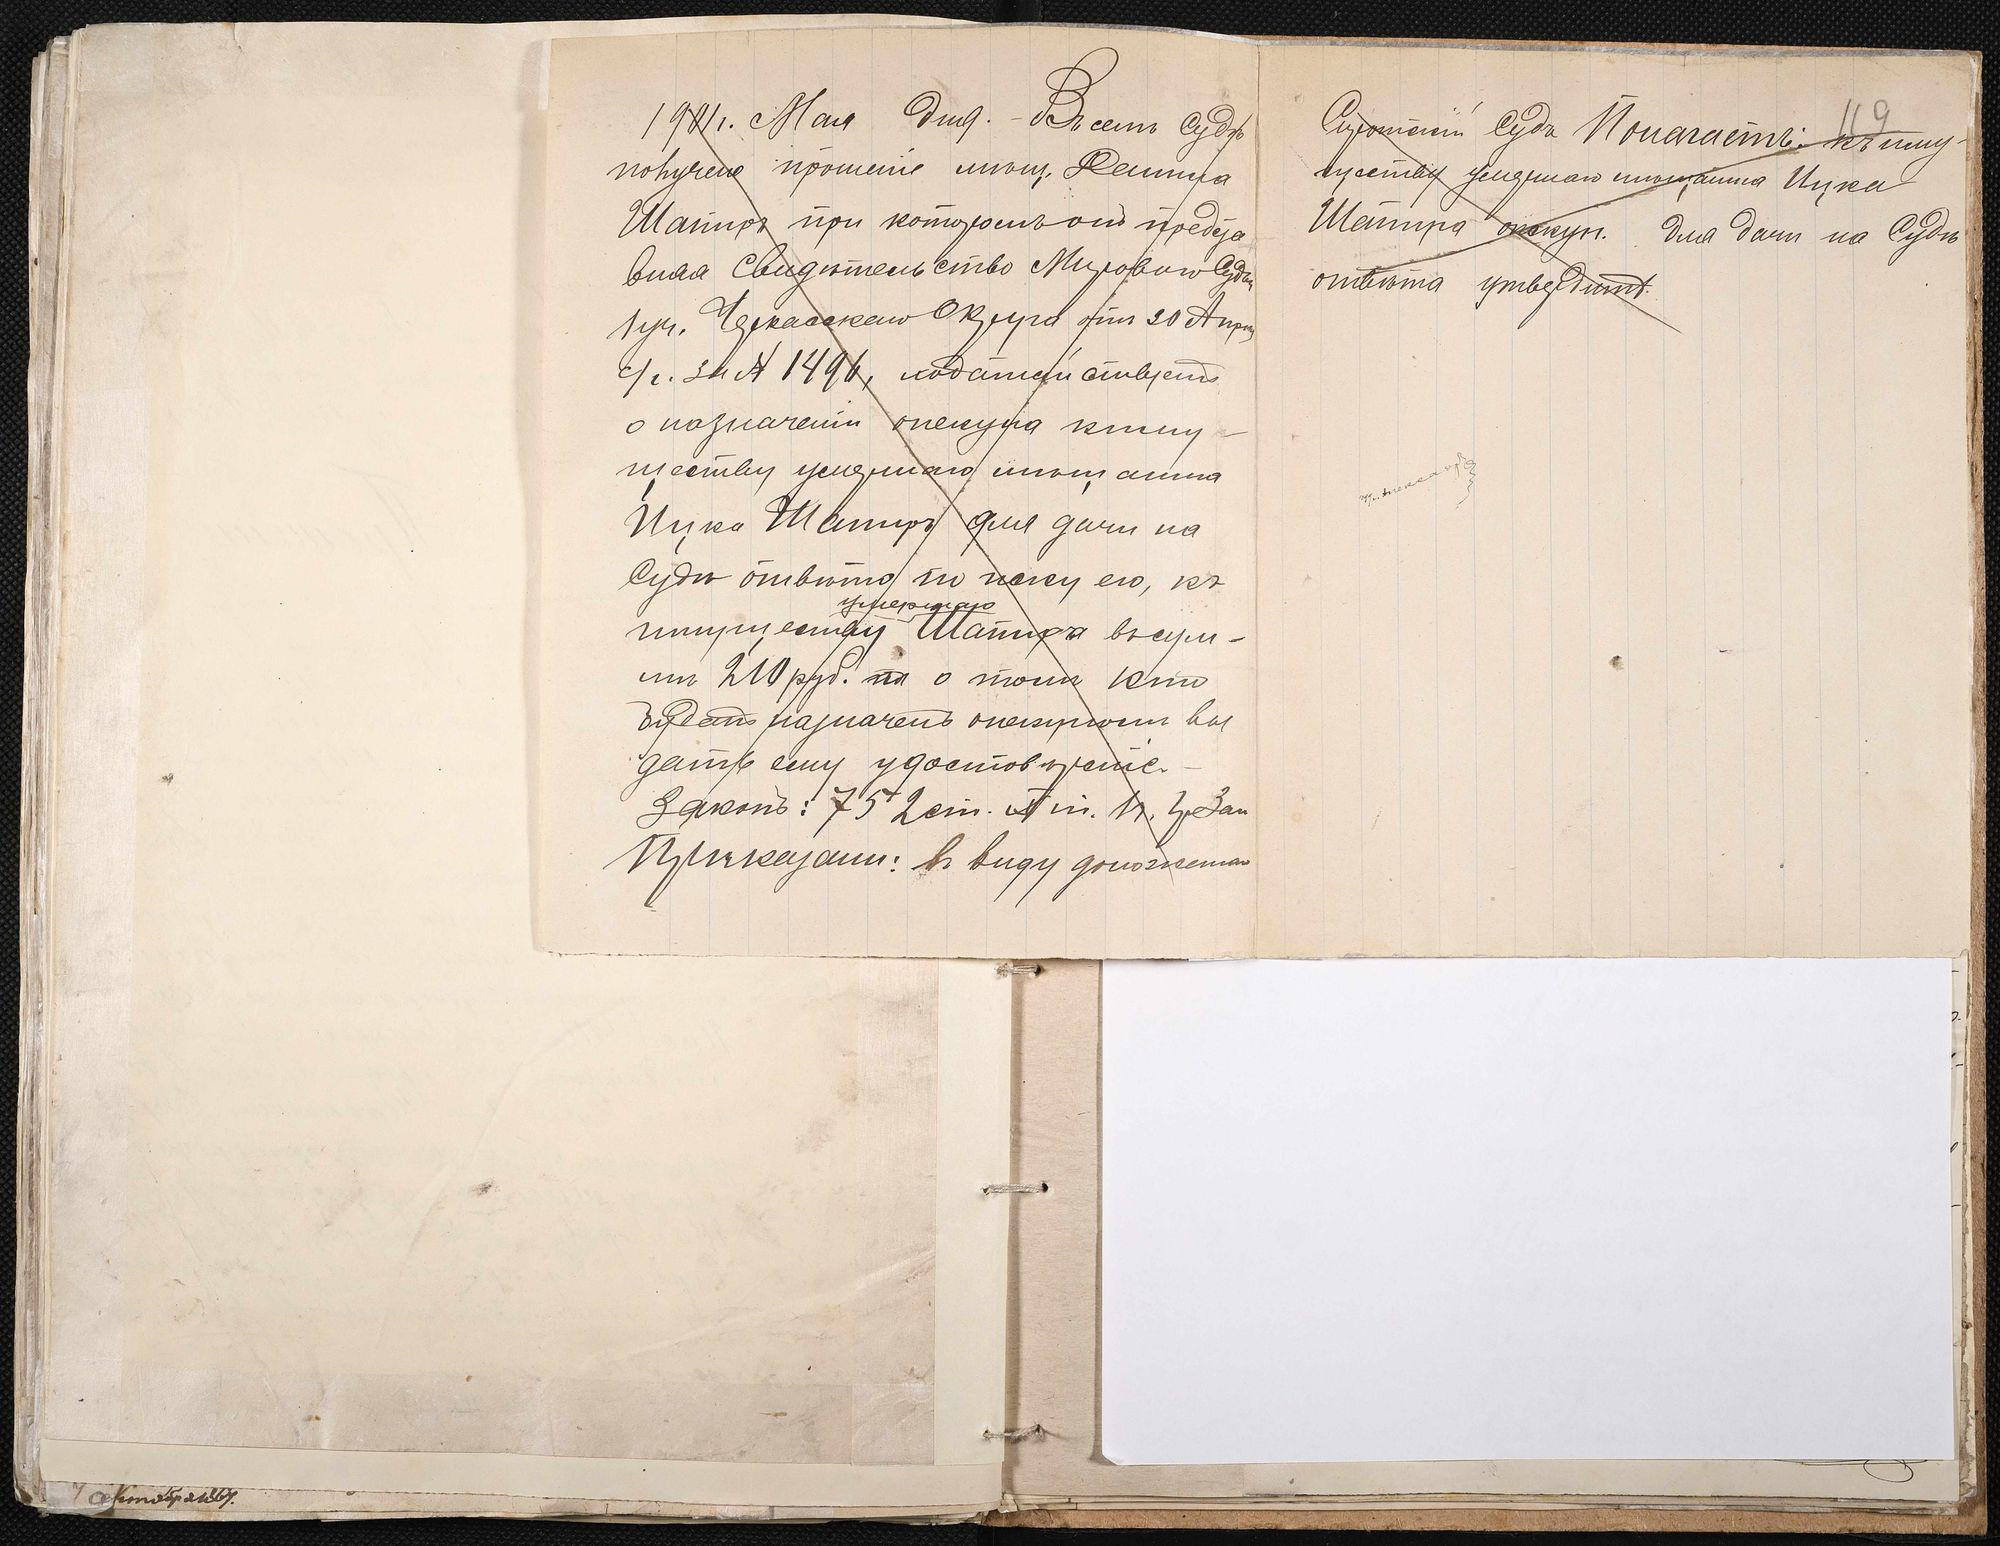 1911 г. Мая дня. – Въ семъ Судѣ
получено прошеніе мѣщ.
Шапиръ при которомъ онъ предста
вилъ Свидѣтельство Мирового Судьи
1 уч. Черкасскаго Округа отъ 20 Апрѣл
с/г. за № 1496, ходатайствуетъ
о назначеніи опекуна къ иму-
ществу умершаго мѣщанина
Ицка Шапиръ для дачи на
Судѣ отвѣта по иску его, къ
умершаго
имуществу Шапира въ сум-
мѣ 210 руб. о томъ кто
будетъ назначенъ опекуномъ вы
дать ему удостовѣреніе. –
Законъ: 75 2 ст. т. Зак
Приказали: въ виду доложеннаго
119
Сиротскій Судъ Полагаетъ: къ иму-
ществу умершаго мѣщанина Ицка
Шапира опекун. для дачи на Судѣ
отвѣта утвердить.
октября